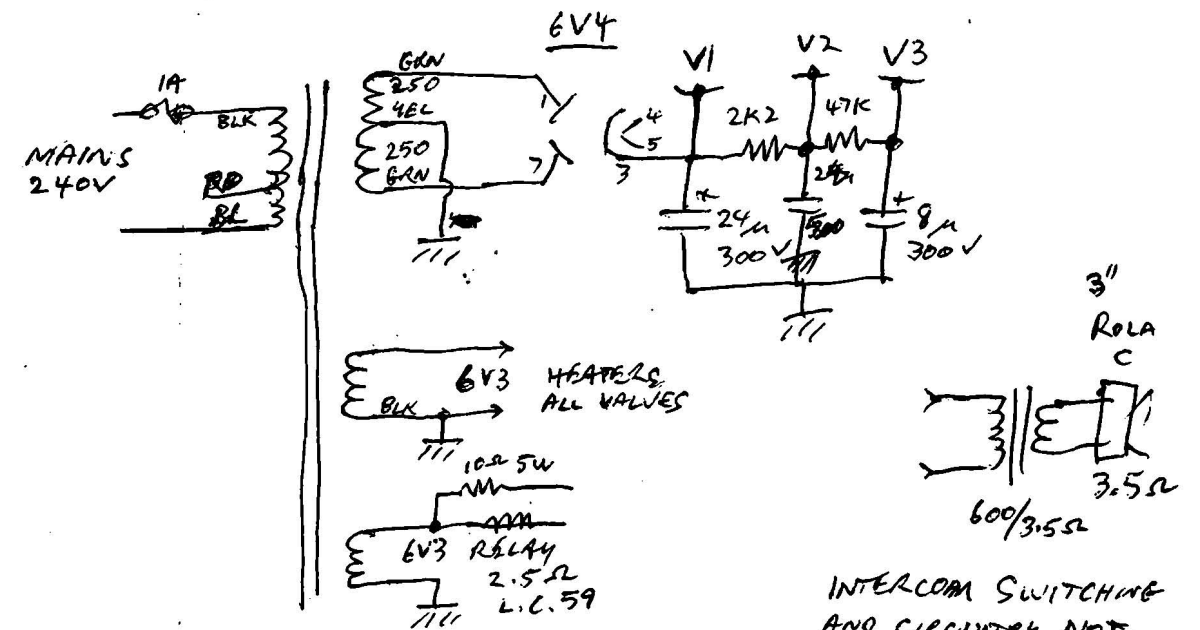 6V4
1A
MAINS
240V
BLK
RD
BL
GRN
250
YEL
250
GRN
1
7
4
5
3
V1
V2
V3
2K2
47K
+
24µ
300V
24µ
300
+
8µ
300V
6V3
BLK
HEATERS
ALL VALVES
10Ω 5W
6V3
RELAY
2.5Ω
L.C.59
3"
ROLA
C
3.5Ω
600/3.5Ω
INTERCOM SWITCHING
AND CIRCUITRY NOT